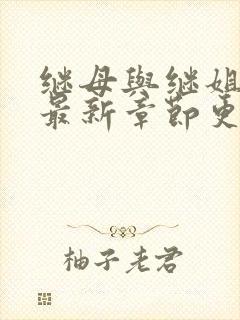 继母與继姐
最新章節更
柚子老君